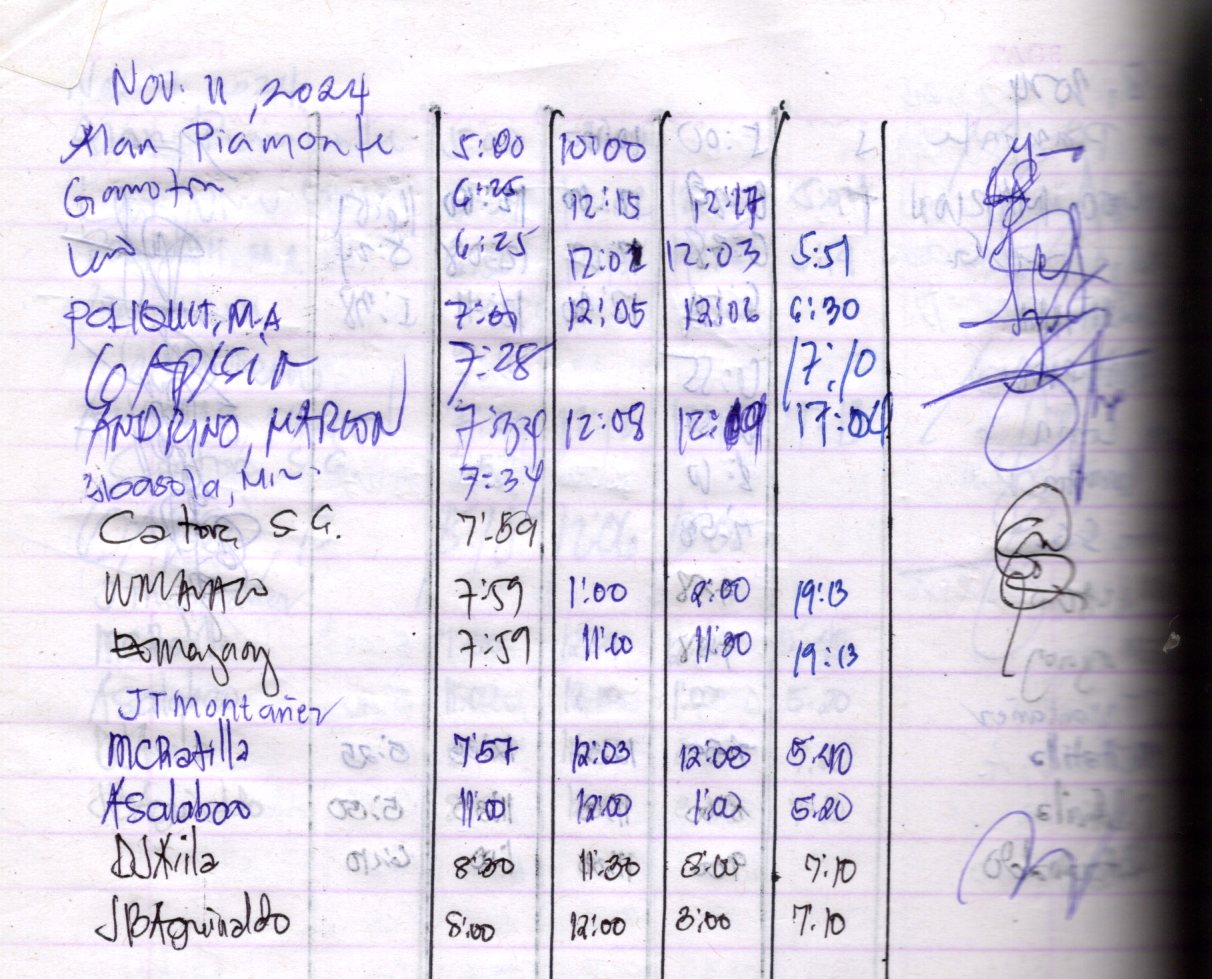 Nov. 11, 2024
Alan Piamonte 5:00 10:00
Gamotin 6:25 12:15 12:17
6:25 12:02 12:03 5:51
POLIQUIT, M.A 7:01 12:05 12:06 6:30
7:28 17:10
ANDRINO, MARLON 7:34 12:08 12:19 17:04
7:34
Catora, S.G. 7:59
7:59 1:00 2:00 19:13
7:59 11:00 11:30 19:13
JTMontañer
MCRatilla 7:57 12:03 12:08 5:40
ASalabao 11:00 12:00 1:00 5:20
DJXila 8:30 11:30 3:00 7:10
JBAguinaldo 8:00 12:00 3:00 7:10